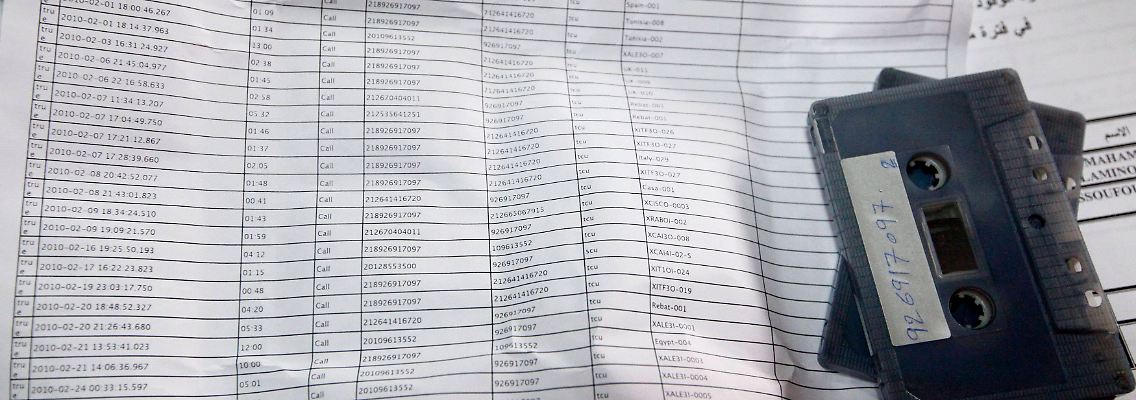 Spain-001
218926917097 Tunisia-008
true 2010-02-01 18:00:46.267 01:09 Call 218926917097 212641416720 tcu Tunisia-002
true 2010-02-01 18:14:37.963 01:34 Call 20109613552 926917097 tcu XALE3O-007
true 2010-02-03 16:31:24.927 13:00 Call 218926917097 212641416720 tcu UK-011
true 2010-02-06 21:45:04.977 02:38 Call 218926917097 212641416720 tcu UK-009
true 2010-02-06 22:16:58.633 01:45 Call 218926917097 212641416720 tcu UK-010
true 2010-02-07 11:34:13.207 02:58 Call 212670404011 926917097 tcu Rebat-001
true 2010-02-07 17:04:49.750 05:32 Call 212535641251 926917097 tcu Rebat-001
true 2010-02-07 17:21:12.867 01:46 Call 218926917097 212641416720 tcu XITF3O-026
true 2010-02-07 17:28:39.660 01:37 Call 218926917097 212641416720 tcu XITF3O-027
true 2010-02-08 20:42:52.077 02:05 Call 218926917097 212641416720 tcu Italy-029
true 2010-02-08 21:43:01.823 01:48 Call 218926917097 212641416720 tcu XITF3O-027
true 2010-02-09 18:34:24.510 00:41 Call 212641416720 926917097 tcu Casa-001
true 2010-02-09 19:09:21.570 01:43 Call 218926917097 212665067915 tcu XCISCO-0003
true 2010-02-16 19:25:50.193 01:59 Call 212670404011 926917097 tcu XRABOI-002
true 2010-02-17 16:22:23.823 04:12 Call 218926917097 109613552 tcu XCAI3O-008
true 2010-02-19 23:03:17.750 01:15 Call 20128553500 926917097 scu XCAI4I-02-S
true 2010-02-20 18:48:52.327 00:48 Call 218926917097 212641416720 tcu XIT1OI-024
true 2010-02-20 21:26:43.680 04:20 Call 218926917097 212641416720 tcu XITF3O-019
true 2010-02-21 13:53:41.023 05:33 Call 212641416720 926917097 tcu Rebat-001
true 2010-02-21 14:06:36.967 12:00 Call 20109613552 926917097 tcu XALE3I-0001
true 2010-02-24 00:33:15.597 10:00 Call 218926917097 109613552 tcu Egypt-004
05:01 Call 20109613552 926917097 tcu XALE3I-0003
Call 20109613552 926917097 tcu XALE3I-0004
XALE3I-0005
في فترة
الاسم
MAHAM
LAMINO
SSOUFOU
926917097. 2